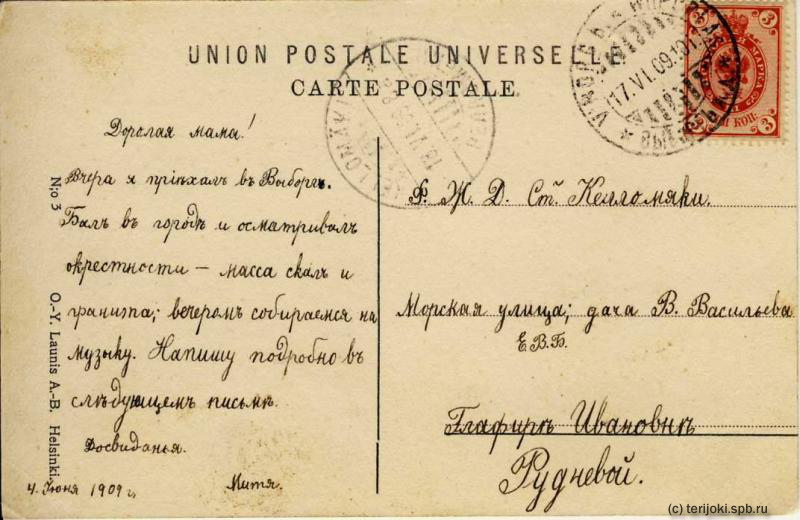 UNION POSTALE UNIVERSELLE
CARTE POSTALE
Дорогая мама!
Вчера я пріѣхалъ въ Выборгъ.
Былъ въ городѣ и осматривалъ
окрестности — масса скалъ и
гранита; вечеромъ собираемся на
музыку. Напишу подробно въ
слѣдующемъ письмѣ.
Досвиданья.
4. Іюня 1909 г. Митя.
N:o 3
O.-Y. Launis A.-B. Helsinki.
Ф. Ж. Д. Ст. Келломяки.
Морская улица; дача В. Васильева
Е.В.Б.
Глафирѣ Ивановнѣ
Рудневой.
KELLOMÄKI
17.VI.09
3
МАРКА
3
3
КОП.
3
(c) terijoki.spb.ru